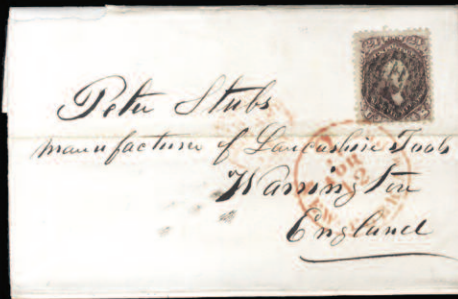 Peter Stubs
manufacturer of Lancashire Tools
Warrington
England
APR
2